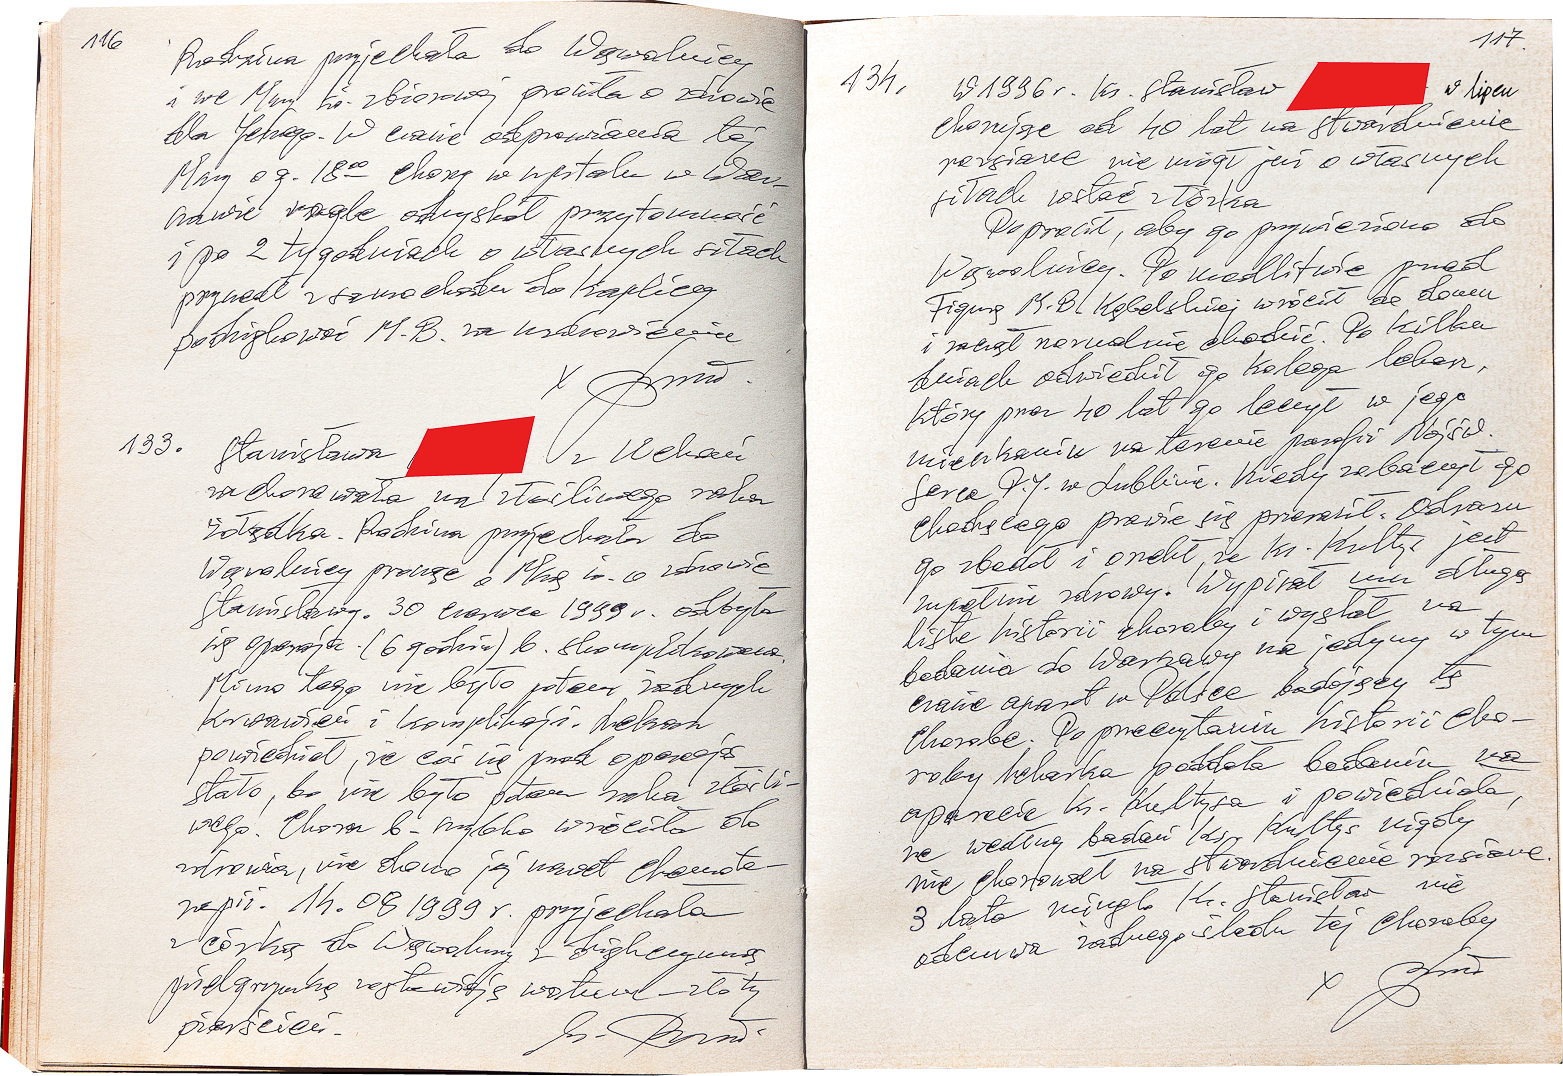 116
Rodzina przyjechała do Wąwolnicy
i we Mszy św. zbiorowej prosiła o zdrowie
dla Jerzego. W czasie odprawiania tej
Mszy o g. 18⁰⁰ chory w szpitalu w War-
szawie nagle odzyskał przytomność
i po 2 tygodniach o własnych siłach
przyszedł z samochodu do Kaplicy
podziękować M.B. za uzdrowienie
X
133. Stanisława z Uchań
zachorowała na złośliwego raka
żołądka. Rodzina przyjechała do
Wąwolnicy prosząc o Mszę św. o zdrowie
Stanisławy. 30 czerwca 1999 r. odbyła
się operacja (6 godzin) b. skomplikowana.
Mimo tego nie było potem żadnych
krwawień i komplikacji. Lekarz
powiedział, że coś się przed operacją
stało, bo nie było potem raka złośli-
wego. Chora b. szybko wróciła do
zdrowia, nie dano jej nawet chemote-
rapii. 14.08 1999 r. przyjechała
z córką do Wąwolnicy z dziękczynną
pielgrzymką zostawiając wotum - złoty
pierścień.
ks.
117.
134. W 1996 r. ks. Stanisław w lipcu
chorując od 40 lat na stwardnienie
rozsiane nie mógł już o własnych
siłach wstać z łóżka
Poprosił, aby go przywieziono do
Wąwolnicy. Po modlitwie przed
Figurą M.B. Kębelskiej wrócił do domu
i zaczął normalnie chodzić. Po kilku
dniach odwiedził go kolega lekarz,
który przez 40 lat go leczył w jego
mieszkaniu na terenie parafii Najśw.
Serca P.J. w Lublinie. Kiedy zobaczył go
chodzącego prawie się przeraził. Od razu
go zbadał i orzekł, że ks. Kultys jest
zupełnie zdrowy. Wypisał mu długą
listę historii choroby i wysłał na
badania do Warszawy na jedyny w tym
czasie aparat w Polsce badający tę
chorobę. Po przeczytaniu historii cho-
roby lekarka poddała badaniu na
aparacie ks. Kultysa i powiedziała,
że według badań ks. Kultys nigdy
nie chorował na stwardnienie rozsiane.
3 lata minęło ks. Stanisław nie
odczuwa żadnego śladu tej choroby
X